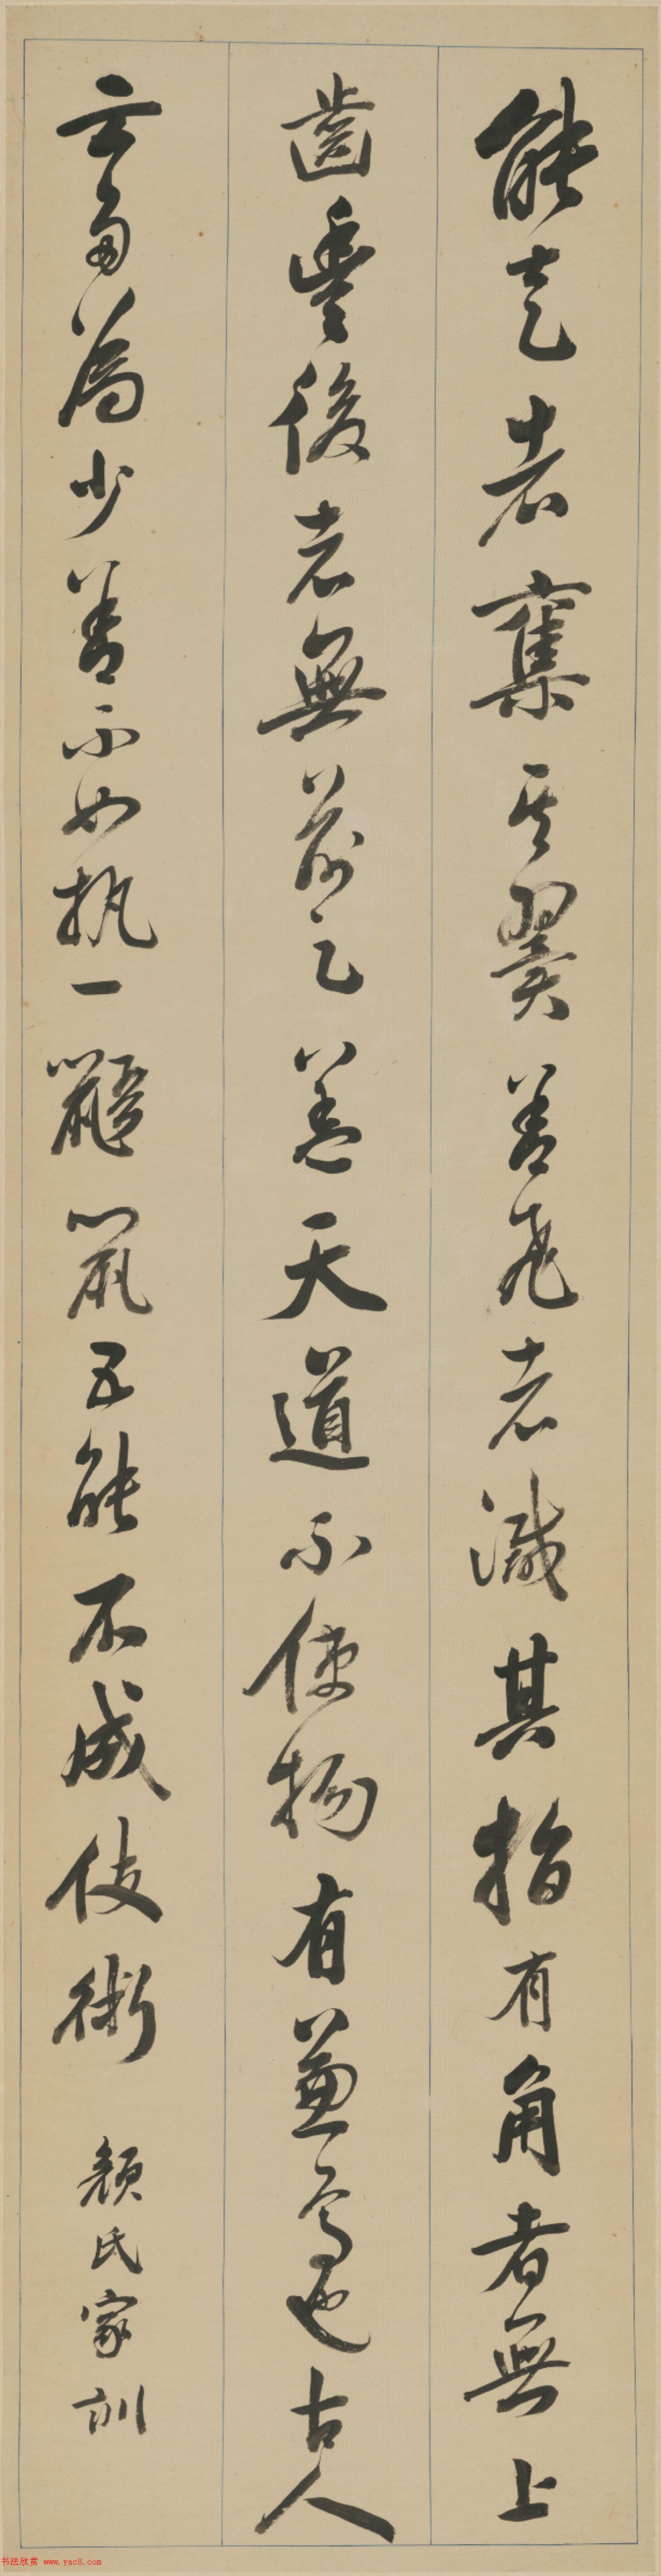 能走者奪其翼善飛者減其指有角者無上
齒豐後者無前足蓋天道不使物有兼焉也古人
云多為少善不如執一鼯鼠五能不成伎術 顏氏家訓
书法欣赏 www.yac8.com